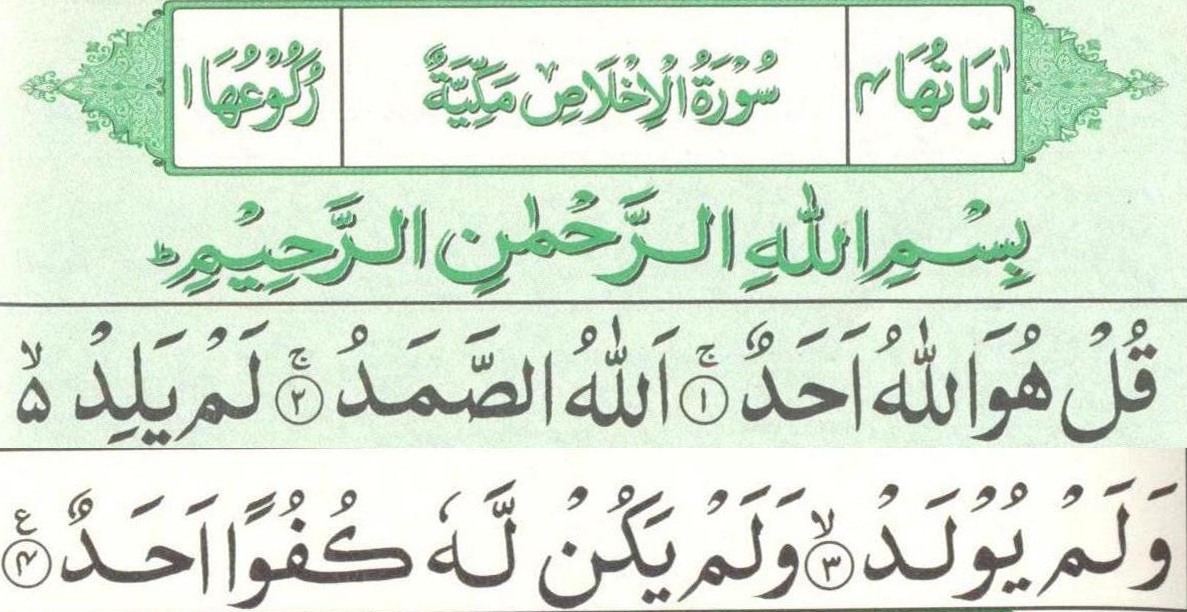 اٰيَاتُهَا ۴ سُوْرَةُ الْاِخْلَاصِ مَكِّيَّةٌ رُكُوْعُهَا ۱
بِسْمِ اللّٰهِ الرَّحْمٰنِ الرَّحِيْمِ ؕ
قُلْ هُوَ اللّٰهُ اَحَدٌ ۚ ۱ اَللّٰهُ الصَّمَدُ ۚ ۲ لَمْ يَلِدْ ۙ ۵
وَلَمْ يُوْلَدْ ۙ ۳ وَلَمْ يَكُنْ لَّهٗ كُفُوًا اَحَدٌ ع ۴